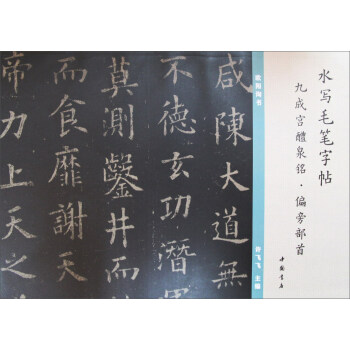 水写毛笔字帖
九成宫醴泉铭·偏旁部首
中国书店
欧阳询书
飞飞 主编
咸陳大道無
不德玄功潛
莫測鑿井而
而食靡謝天
帝力上天之